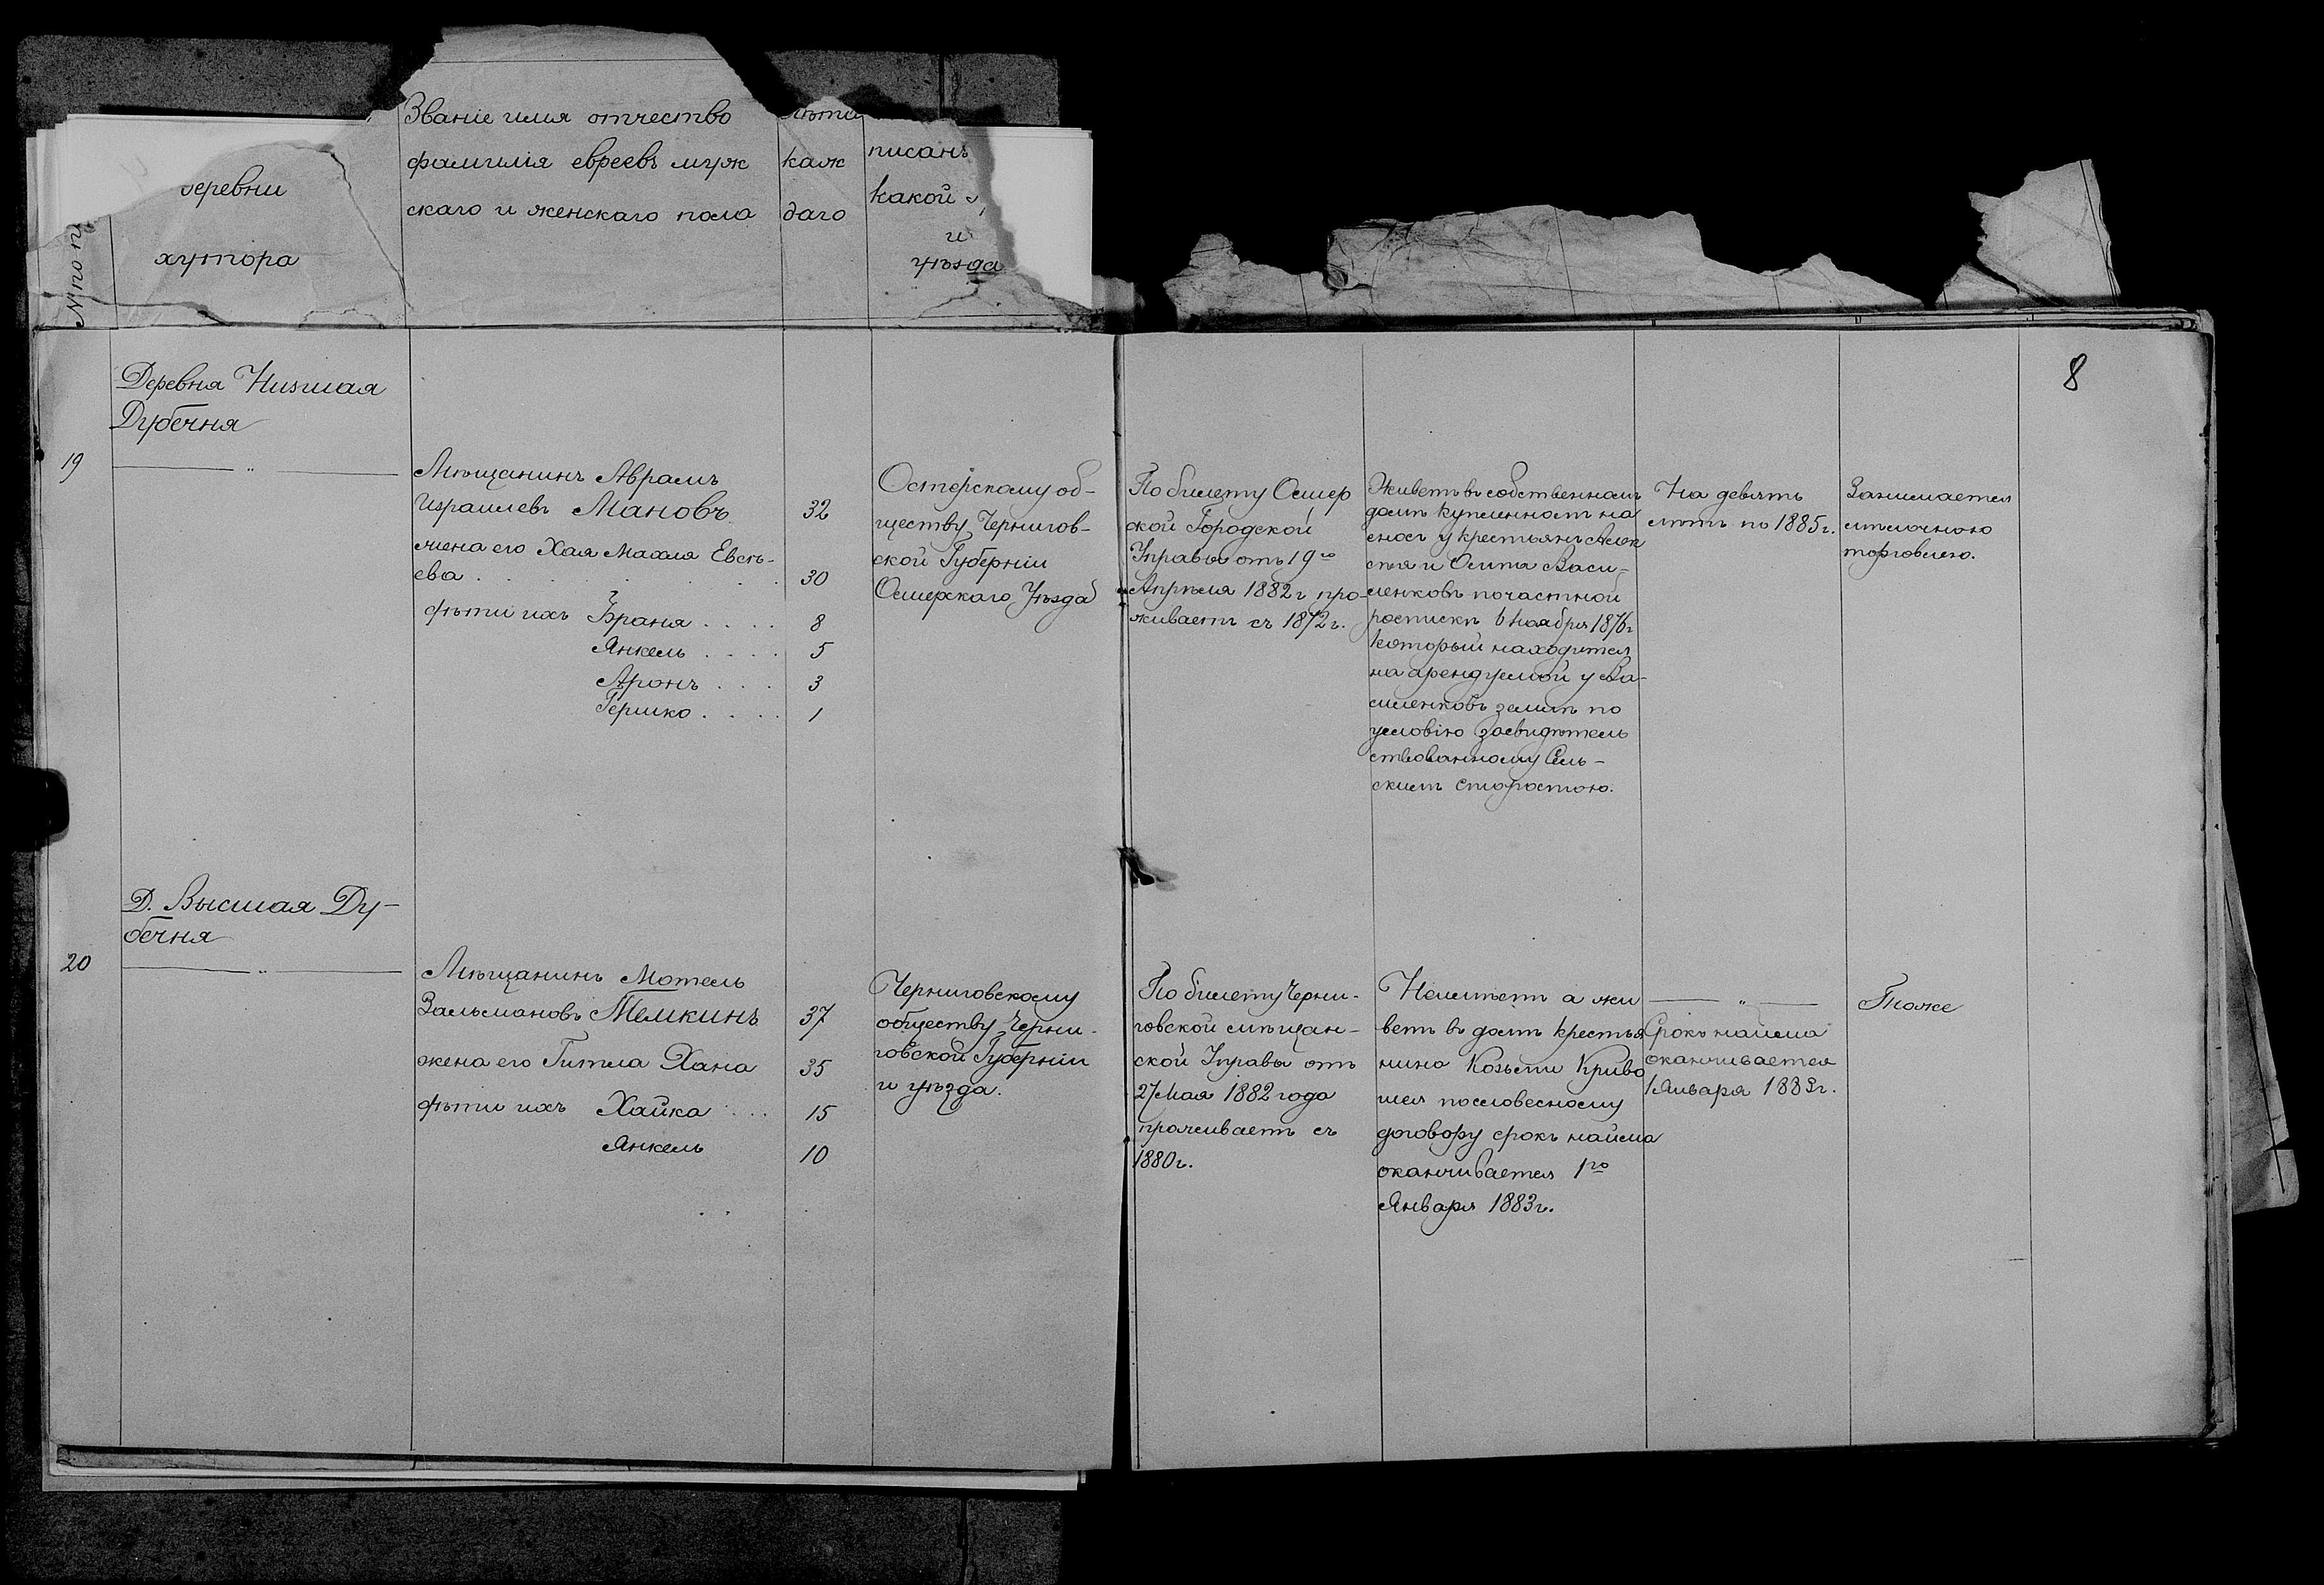 Званіе имя отчество
фамилія евреевъ муж
скаго и женскаго пола
лѣта
каж
даго
писанъ
какой
и
уѣзда
деревни
хутора
№ по п
8
Деревня Низшая
Дубечня
19
— " —
Мѣщанинъ Аврамъ
Израилевъ Мановъ
32
жена его Хая Махля Евсѣ-
ева . . . . . .
30
дѣти ихъ Браня . . . .
8
Янкель . . . .
5
Аронъ . . .
3
Гершко . . . .
1
Остерскому об-
ществу Чернигов-
ской Губерніи
Остерскаго Уѣзда
По билету Остер
ской Городской
Управы отъ 19го
Апрѣля 1882 г про-
живаетъ съ 1872 г.
Живетъ въ собственномъ
домѣ купленномъ на
сносъ у крестьянъ Алек
сѣя и Осипа Васи-
ленковъ по частной
роспискѣ 6 Ноября 1876 г
который находится
на арендуемой у Ва-
силенковъ землѣ по
условію засвидѣтель
ствованному Сель-
скимъ Старостою.
На девять
лѣтъ по 1885 г.
Занимается
мелочною
торговлею.
Д. Высшая Ду-
бечня
20
— " —
Мѣщанинъ Мотель
Зальмановъ Темкинъ
37
жена его Гитла Хана
35
дѣти ихъ Хайка . . .
15
Янкель
10
Черниговскому
обществу Черни-
говской Губерніи
и уѣзда.
По билету Черни-
говской мѣщан-
ской Управы отъ
27 Мая 1882 года
проживаетъ съ
1880 г.
Неимѣетъ а жи
ветъ въ домѣ крестья
нина Козьмы Криво
шея пословесному
договору срокъ найма
оканчивается 1го
Января 1883 г.
— " —
Срокъ найма
оканчивается
1 Января 1883 г.
Тоже